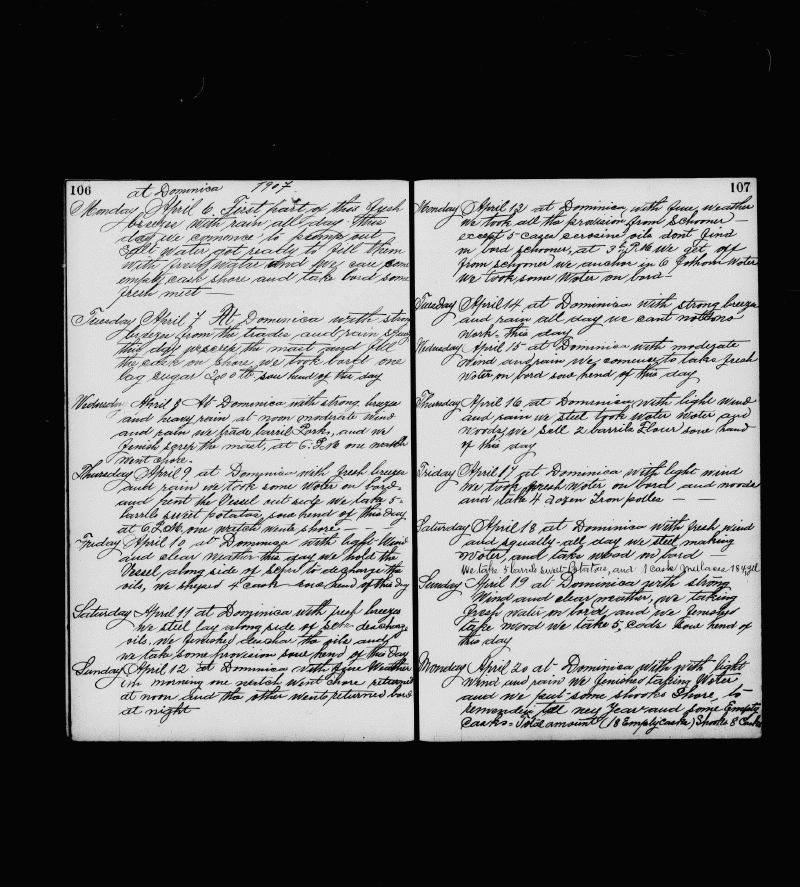 106
at Dominica 1907.
Monday April 6. First part of this fresh
breeze with rain all day this
day we comence to pomp out
salt water got ready to fill them
with fresh water and we
empty cask shore and take bord some
fresh meet —
Tuesday April 7 At Dominica with strong
breeze from the trades and rain
this day we the mast and fill
the cask on shore we took bord one
bag sugar 300 lb sow hend of this day
Wednesday April 8 At Dominica with strong breeze
and heavy rain at noon moderate wind
and rain we trade barril Pork, and we
fenish the mast, at 6. P.M one watch
went shore.
Thursday April 9, at Dominica with fresh breeze
and rain we took some Woter on bord
and pent the Vessel out side we take 5
barrils sweet potatos, sow hend of this day
at 6.P.M. one watch went shore — — —
Friday April 10 at Dominica with light Wind
and clear weather this day we
Vessel along side of to descharge the
oils, we shiped 4 cask sow hend of this day
Saturday April 11 at Dominica with fresh breeze
we steel lay along side of descharge
oils. we fenished the oils and
we take some provision sow hend of this day
Sunday April 12 at Dominica with fine Weather
in morning one watch went shore returned
at noon and the other went returned bord
at night
107
Monday April 13 at Dominica with fine weather
we took all the provision from schooner —
except 5 case cerosine oils dont find
in bord schooner, at 3 P.M. we get off
from schooner we anchor in 6 fothom Woter
we took some Woter on bord —
Tuesday April 14 at Dominica with strong breeze
and rain all day we cant
work this day
Wednesday April 15 at Dominica with moderate
wind and rain we comence to take fresh
Woter on bord sow hend of this day
Thursday April 16 at Dominica with light wind
and rain we steel took Woter Woter and
woods, we sell 2 barrils Flour sow hend
of this day
Friday April 17 at Dominica with light wind
we took fresh Woter on bord and woods
and take 4 dozen Iron polles — —
Saturday April 18 at Dominica with fresh wind
and squally all day we steel making
Woter, and take wood in bord —
We take 5 barrils sweet Potatoes, and 1 cask melases 18 gl
Sunday April 19 at Dominica with strong
Wind and clear weather, we taking
fresh water in bord, and we fenished
take wood we take 5, Cods sow hend of
this day
Monday April 20 at Dominica with with light
Wind and rain we fenished taking Woter
and we put some shooks shore, to
till ney Year and some Empty
Casks = Total amount (18 Empty casks) Shooks 8 Casks